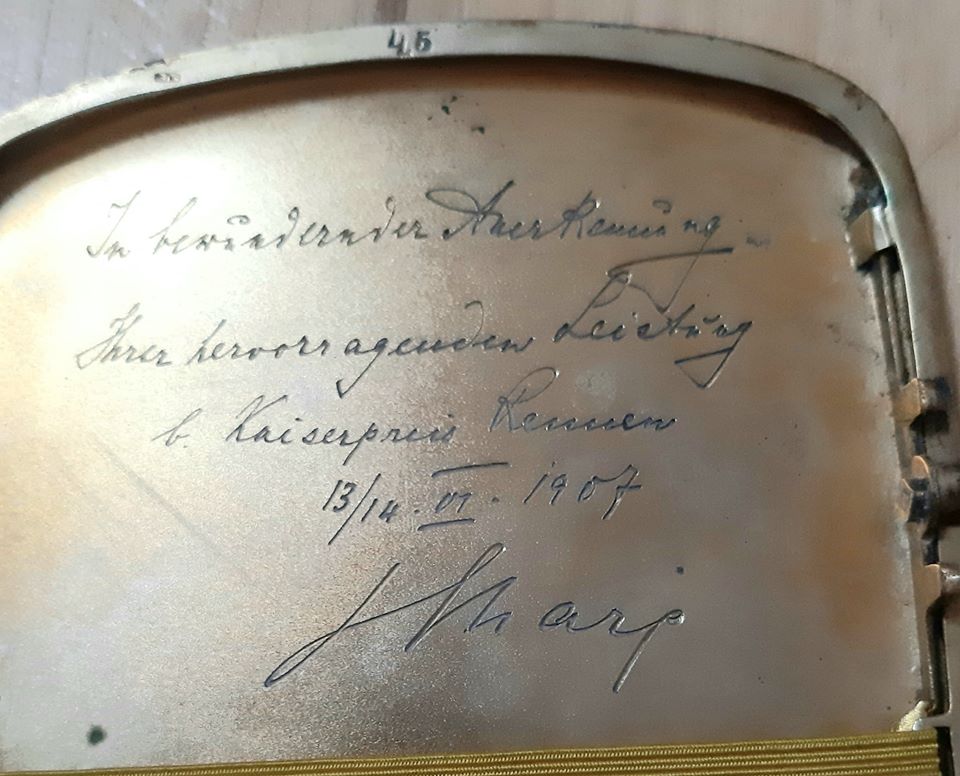 45
In bewundernder Anerkennung
Ihrer hervorragenden Leistung
b. Kaiserpreis Rennen
13/14. VI. 1907